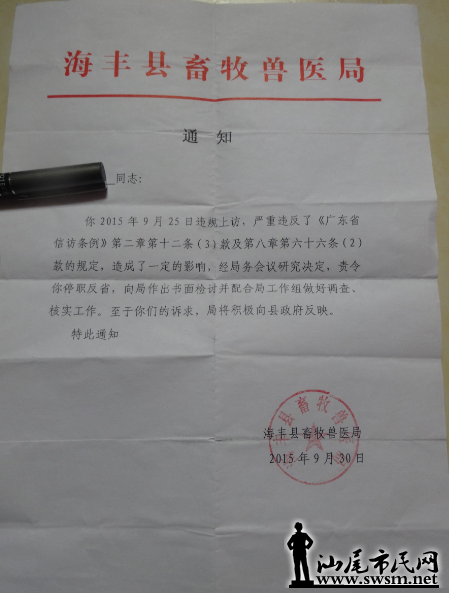 海丰县畜牧兽医局
通知
同志：
你2015年9月25日违规上访，严重违反了《广东省
信访条例》第二章第十二条（3）款及第八章第六十六条（2）
款的规定，造成了一定的影响，经局务会议研究决定，责令
你停职反省，向局作出书面检讨并配合局工作组做好调查、
核实工作。至于你们的诉求，局将积极向县政府反映。
特此通知
海丰县畜牧兽医局
2015年9月30日
汕尾市民网
www.swsm.net